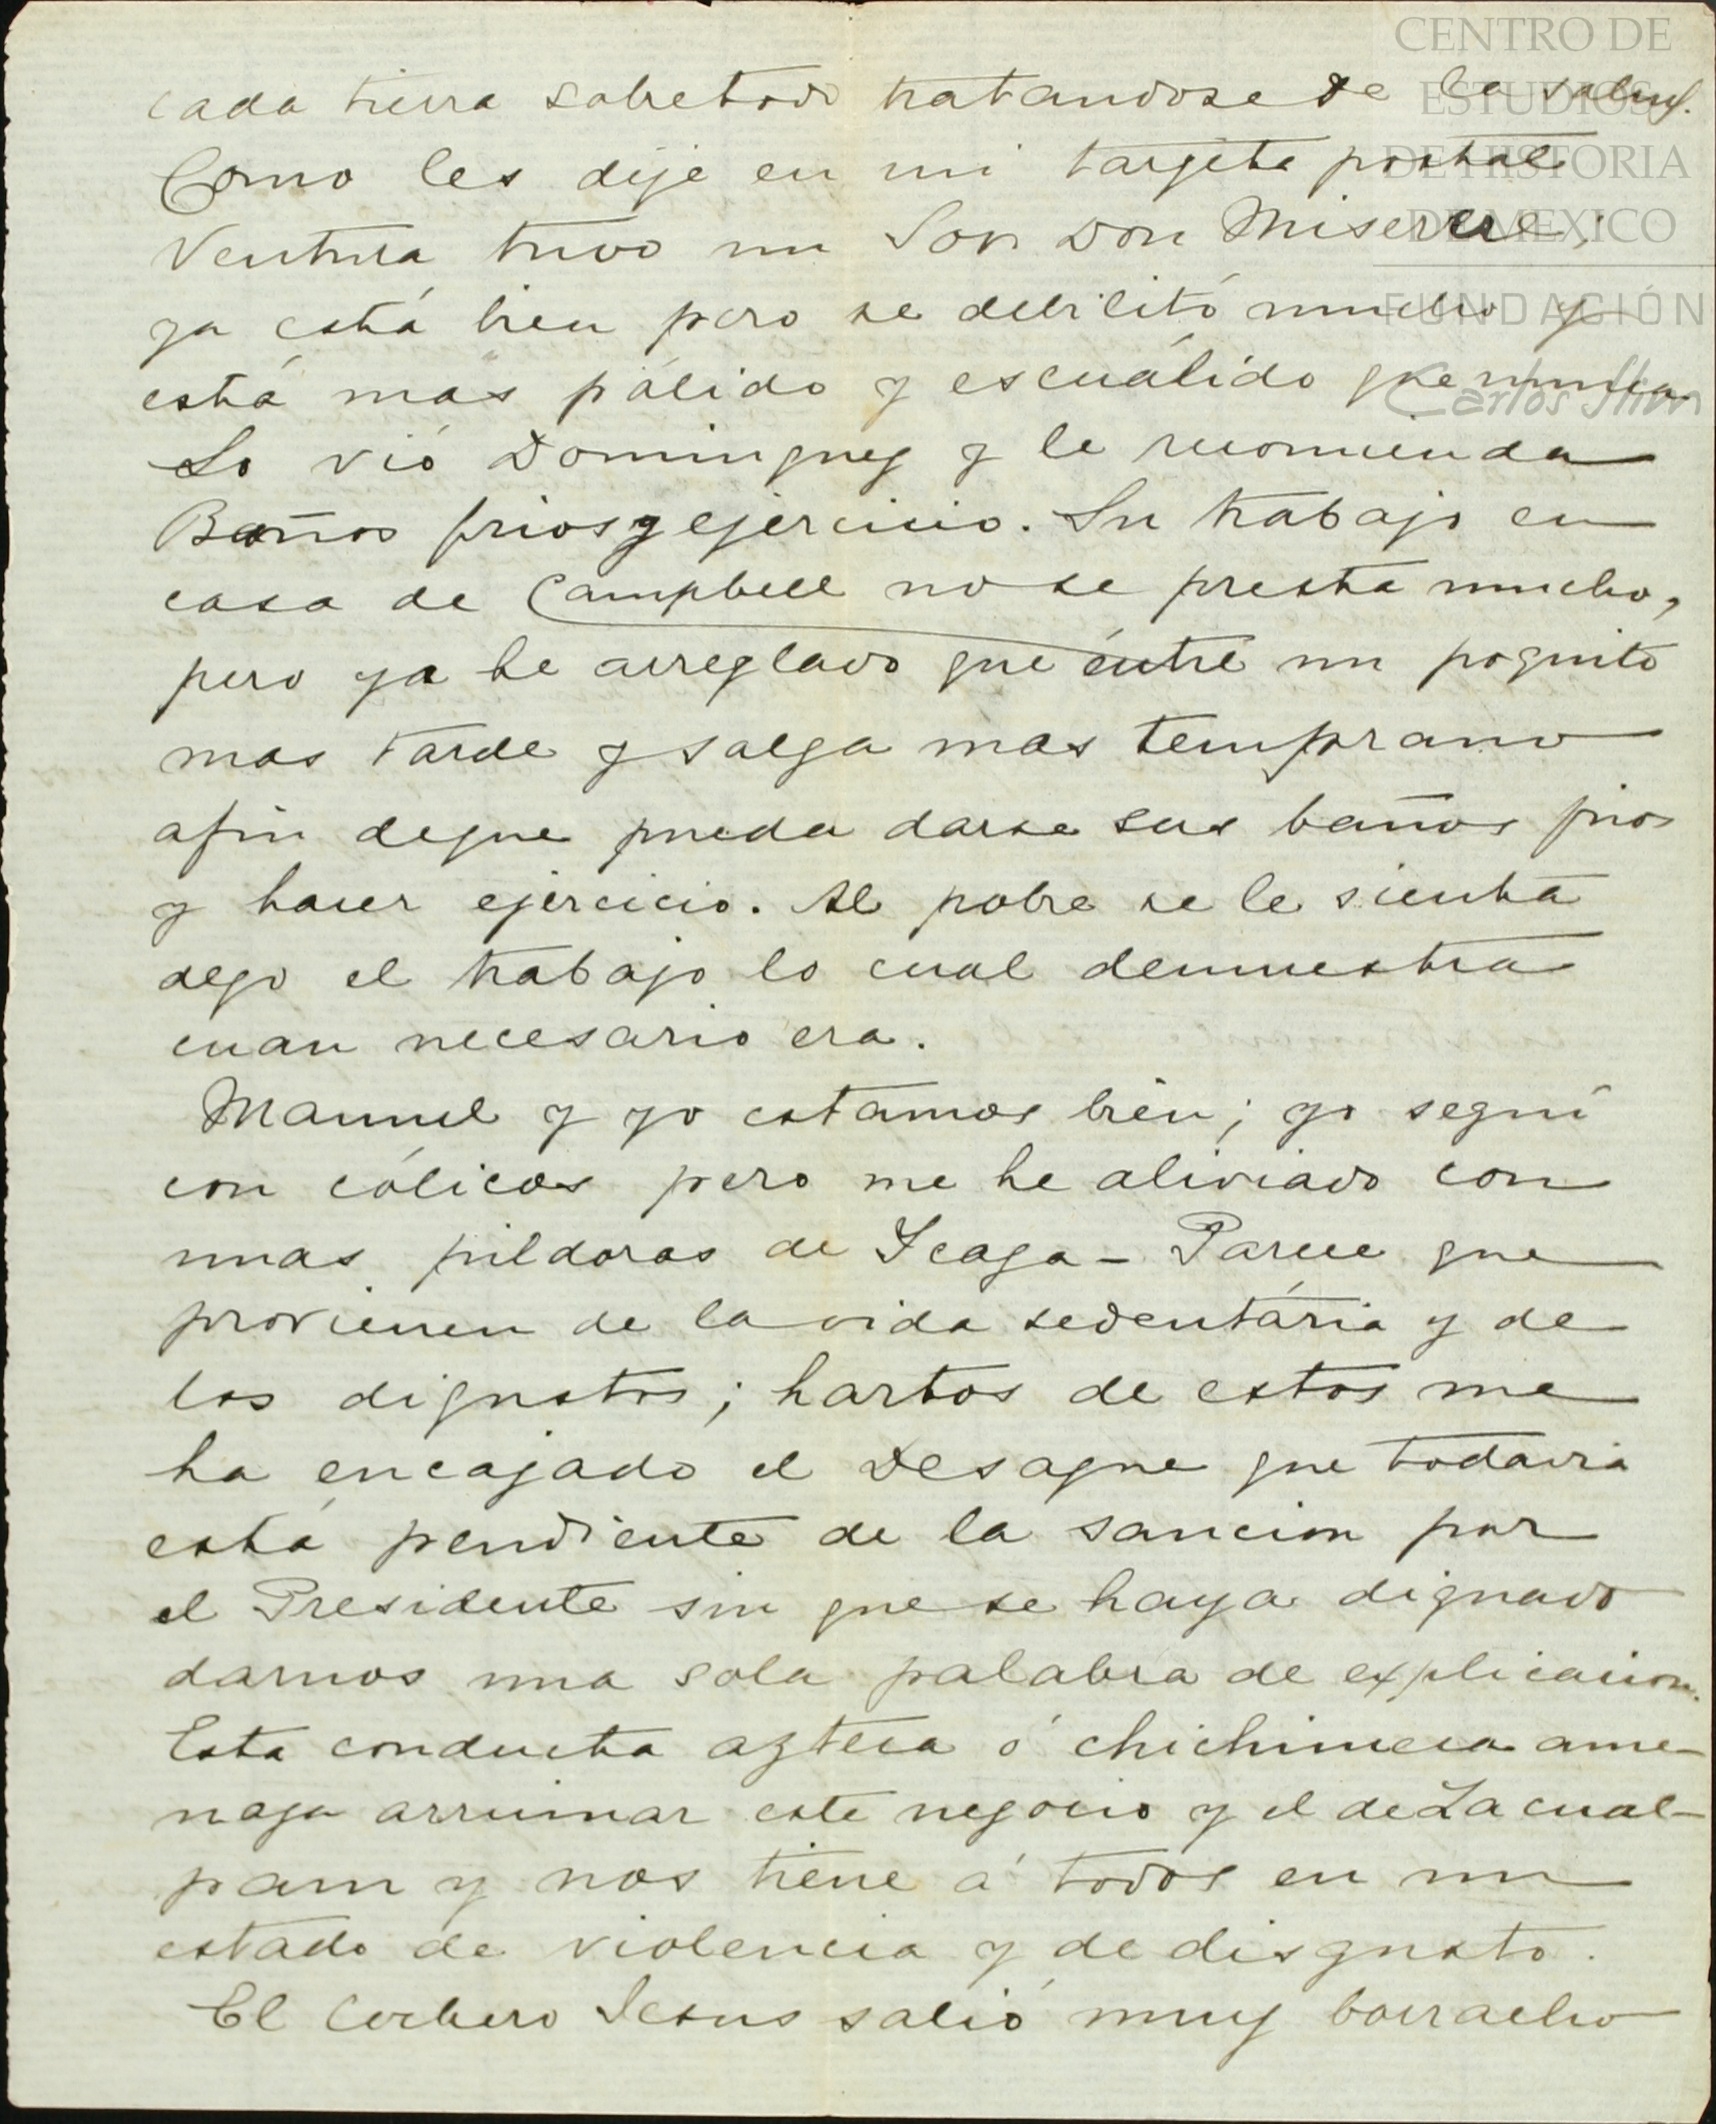 cada tierra sobretodo tratandose de la salud.
Como les dije en mi targeta postal
Ventura tuvo un Son Don Miserere;
ya está bien pero se debilitó mucho y
está mas pálido y escuálido que nunca
Lo vió Dominguez y le recomienda
Baños frios y ejercicio. Su trabajo en
casa de Campbell no se presta mucho,
pero ya he arreglado que éntre un poquito
mas tarde y salga mas temprano
afin deque pueda darse sus baños frios
y hacer ejercicio. Al pobre se le sienta
algo el trabajo lo cual demuestra
cuan necesario era.
Manuel y yo estamos bien; yo seguí
con cólicos pero me he aliviado con
unas pildoras de Icaza - Parece que
provienen de la vida sedentária y de
los digustos; hartos de estos me
ha encajado el Desague que todavia
está pendiente de la sancion por
el Presidente sin que se haya dignado
darnos una sola palabra de explicacion.
Esta conducta azteca ó chichimeca ame-
naza arruinar este negocio y el de Zacual-
pam y nos tiene á todos en un
estado de violencia y de disgusto.
El Cochero Jesus salió muy borracho
CENTRO DE
ESTUDIOS
DE HISTORIA
DE MEXICO
FUNDACIÓN
Carlos Slim